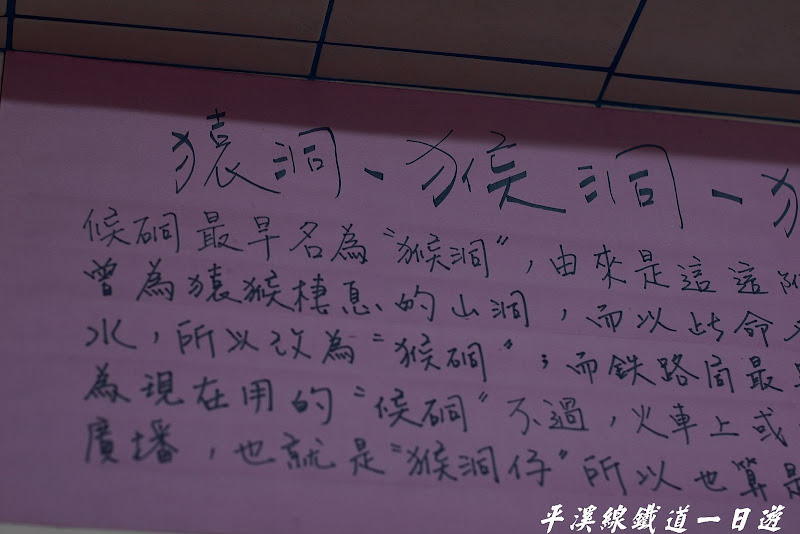 猿洞、猴洞、
侯硐最早名為“猴洞”，由來是這這附
曾為猿猴棲息的山洞，而以此命名
水，所以改為“猴硐”；而鉄路局最
為現在用的“侯硐”不過，火車上或
廣播，也就是“猴洞仔”所以也算是
平溪線鐵道一日遊